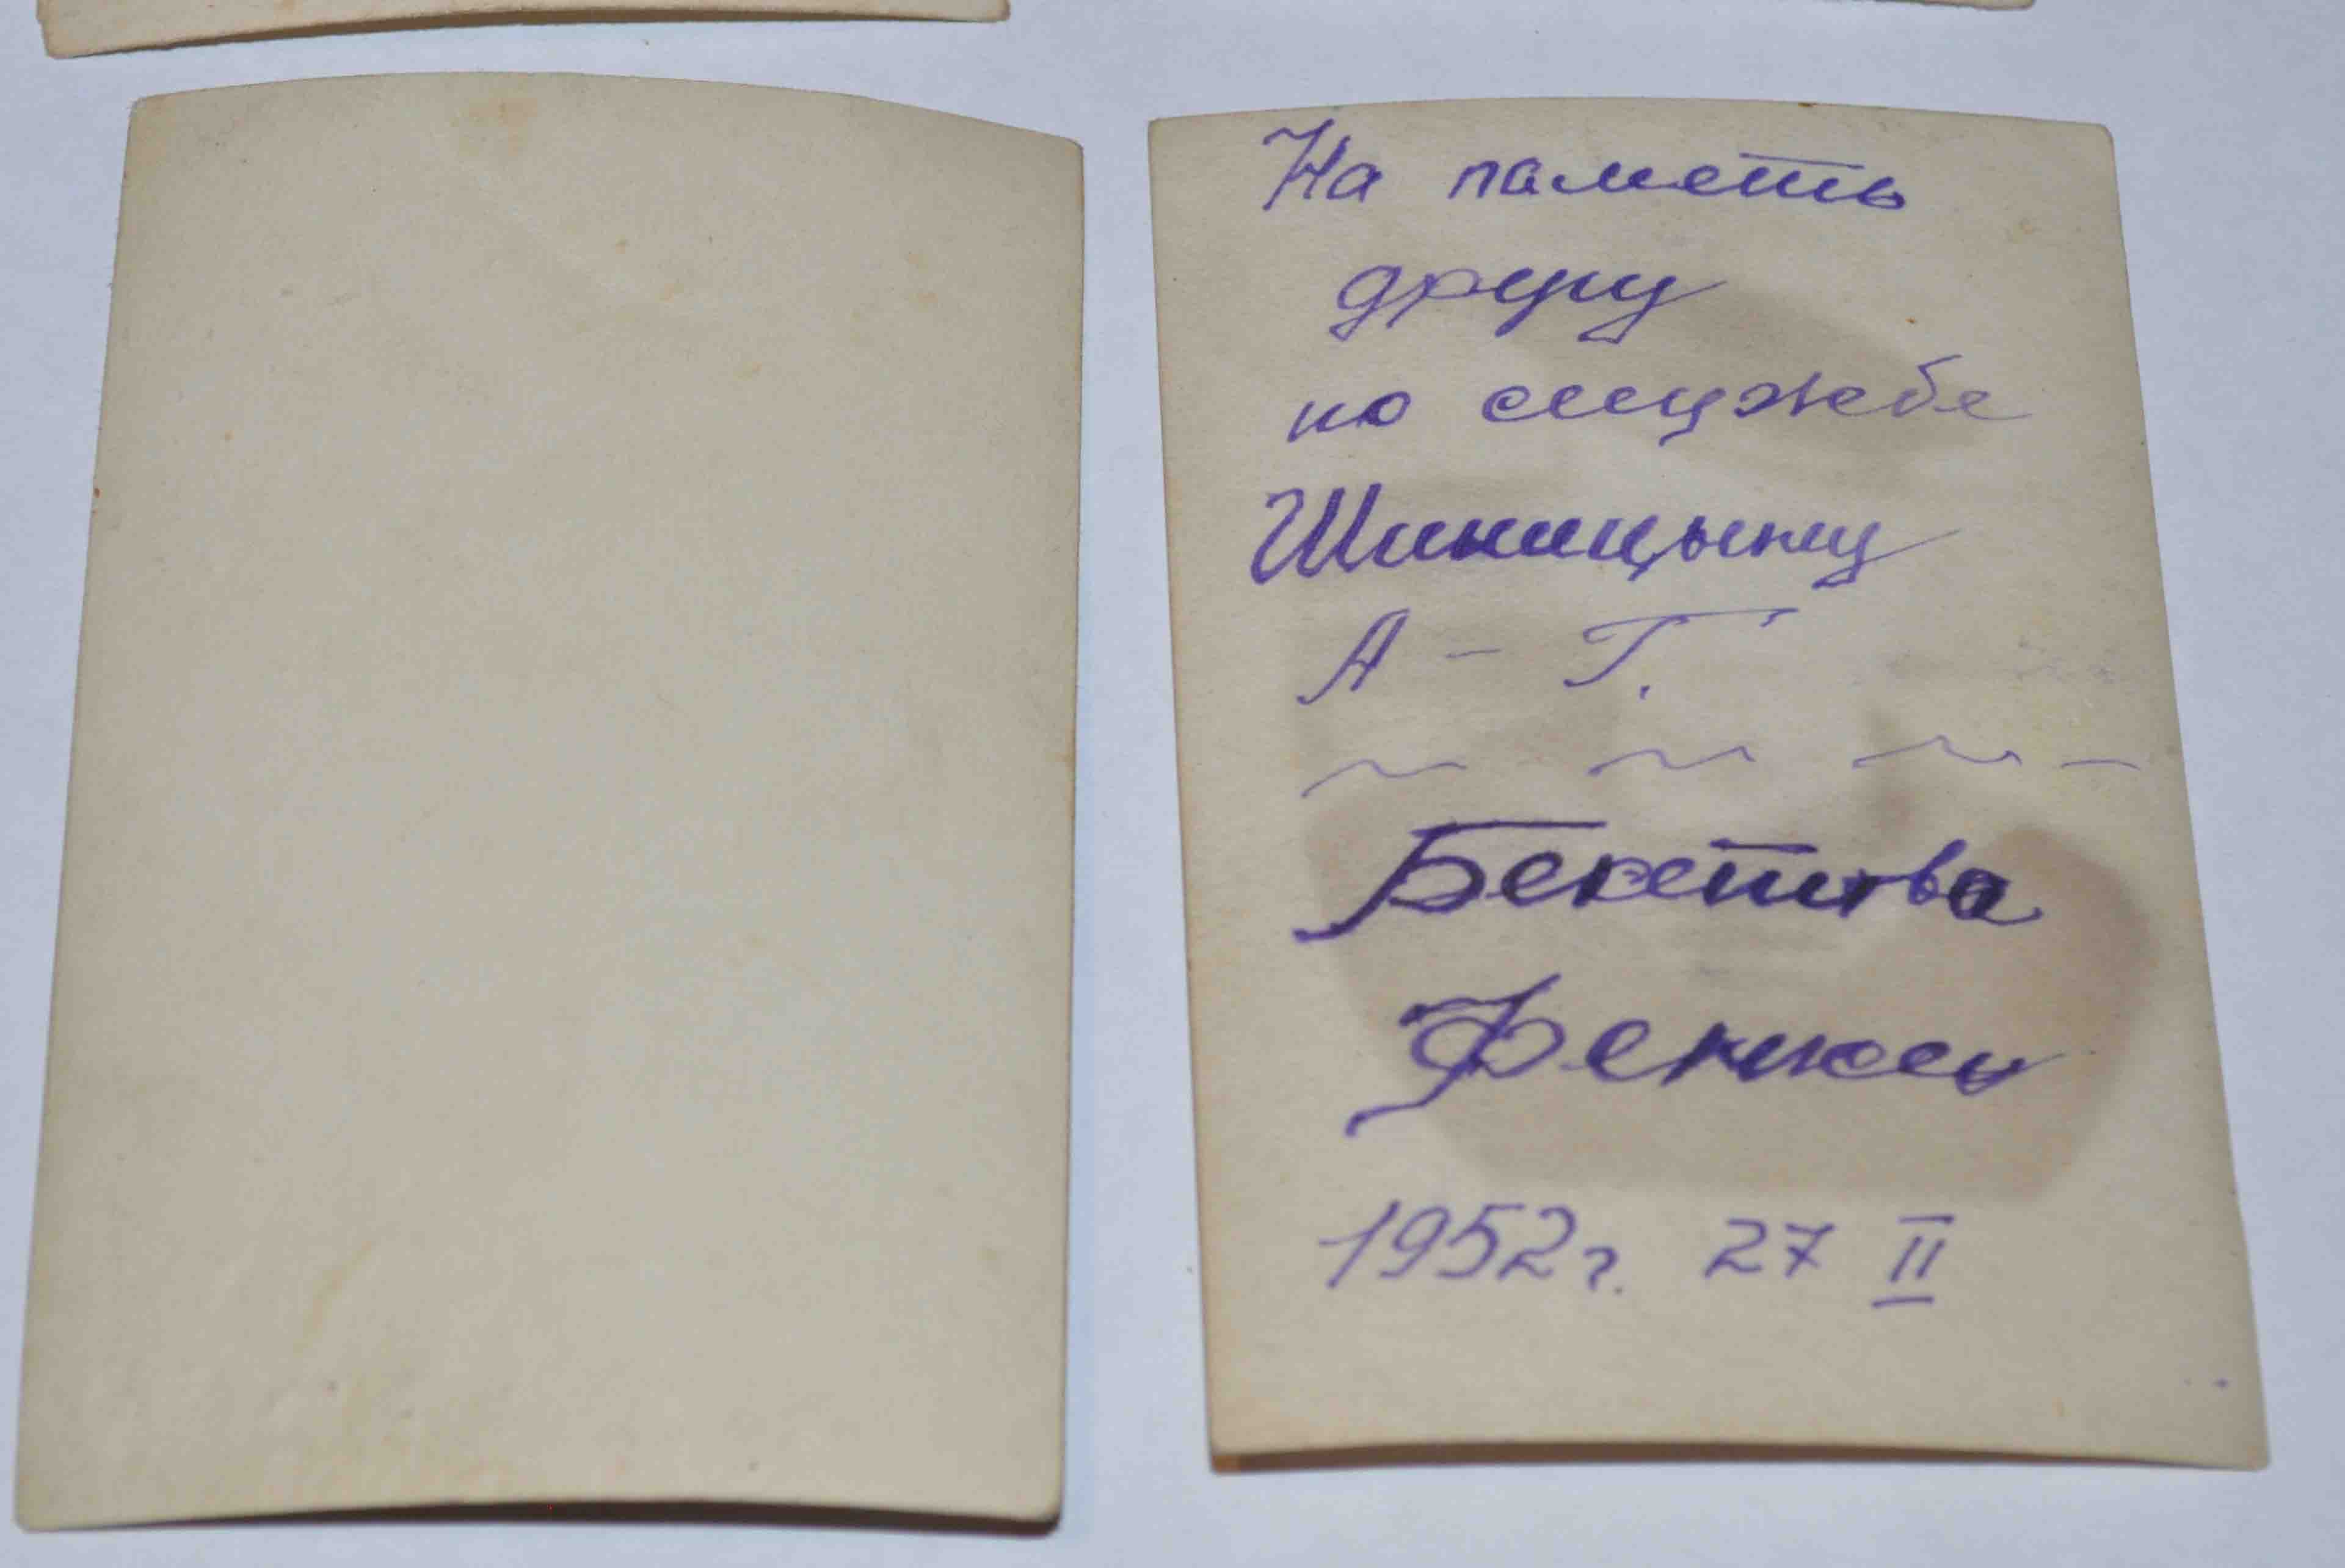 На паметь
другу
по службе
Шиницыну
А - Г.
Бекетова
1952г. 27 II